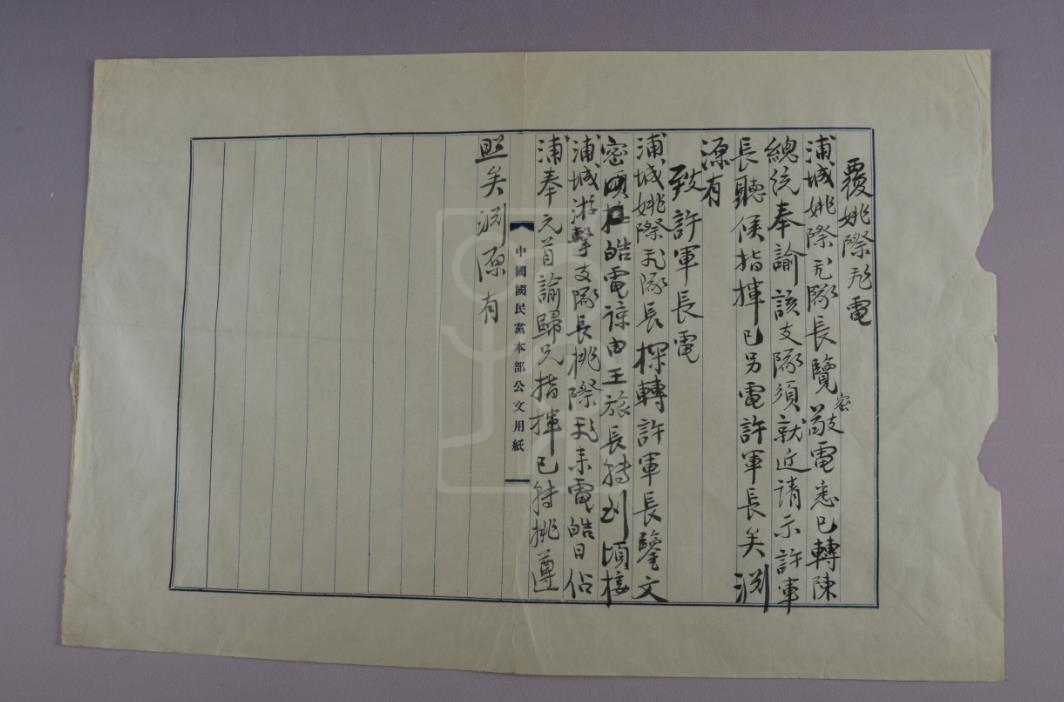 覆姚際彪電
浦城姚際彪隊長覽密敬電悉已轉陳
總統奉諭該支隊須就近請示許軍
長聽候指揮已另電許軍長矣淵
源有
致許軍長電
浦城姚際彪隊長探轉許軍長鑒文
密皓電諒由王旅長轉到頃接
浦城游擊支隊長姚際彪來電皓日佔
浦奉元首諭歸兄指揮已轉姚遵
照矣淵源有
中國國民黨本部公文用紙